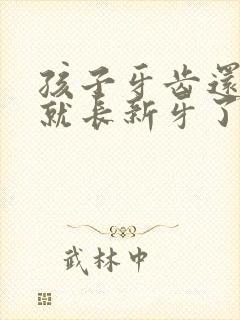 孩子牙齿還
就長新牙了
武林中